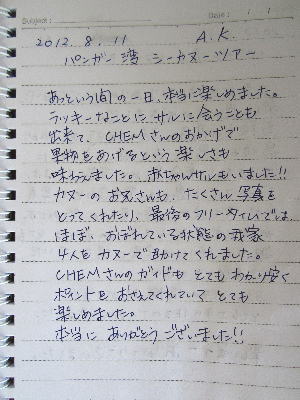 Subject: Date: ・ ・
2012. 8. 11 A.K.
パンガー湾 シーカヌーツアー
あっという間の一日、本当に楽しめました。
ラッキーなことに サルに会うことも
出来て、CHEMさんのおかげで
果物をあげるという楽しさも
味わえました。赤ちゃんサルもいました!!
カヌーのお兄さんも、たくさん写真を
とってくれたり、最後のフリータイムでは、
ほぼ、おぼれている状態の我家
4人をカヌーで助けてくれました。
CHEMさんのガイドも とてもわかり安く
ポイントを おさえてくれていて とても
楽しめました。
本当に ありがとうございました!!